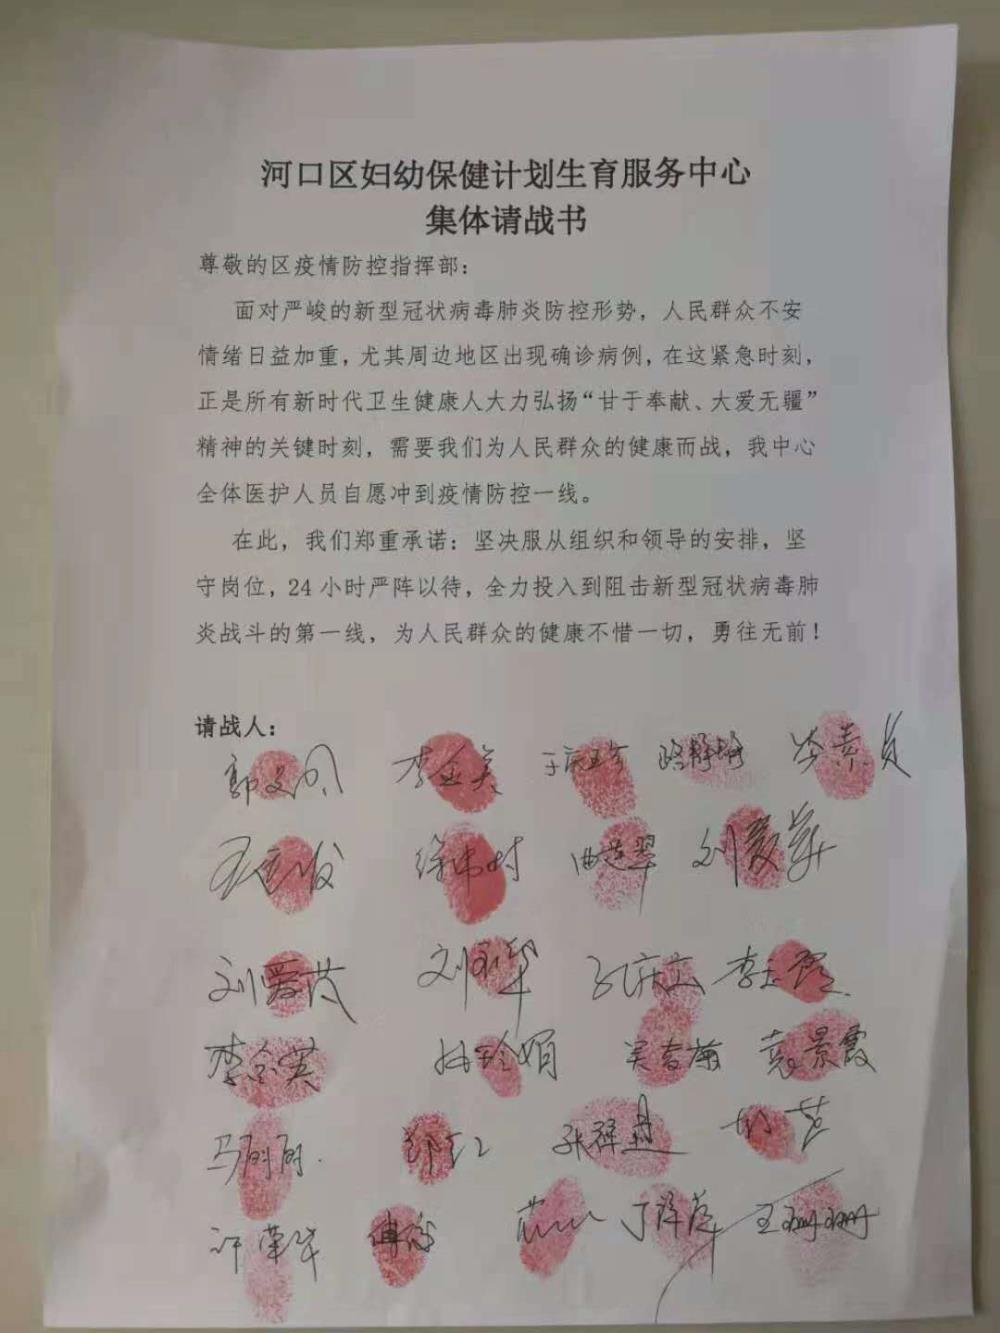 河口区妇幼保健计划生育服务中心
集体请战书
尊敬的区疫情防控指挥部：
面对严峻的新型冠状病毒肺炎防控形势，人民群众不安
情绪日益加重，尤其周边地区出现确诊病例，在这紧急时刻，
正是所有新时代卫生健康人大力弘扬“甘于奉献、大爱无疆”
精神的关键时刻，需要我们为人民群众的健康而战，我中心
全体医护人员自愿冲到疫情防控一线。
在此，我们郑重承诺：坚决服从组织和领导的安排，坚
守岗位，24 小时严阵以待，全力投入到阻击新型冠状病毒肺
炎战斗的第一线，为人民群众的健康不惜一切，勇往无前！
请战人：
李金英 路静静
刘爱芹
李金英 袁景霞
马丽丽 郭红
许荣华 王珊珊